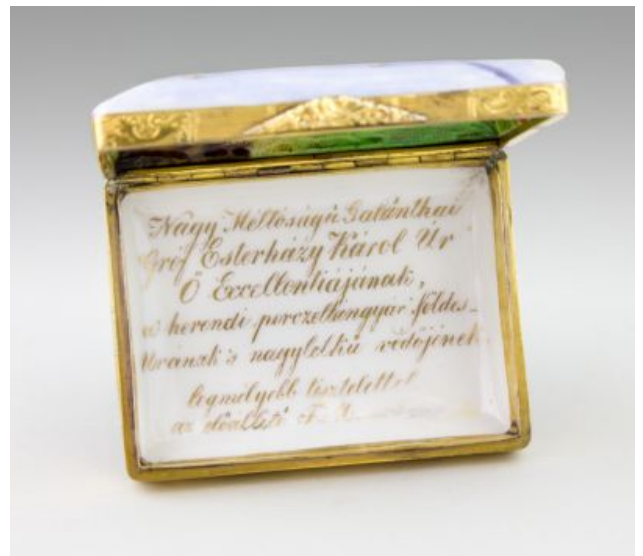 Nagy Méltóságú Galánthai
Gróf Esterházy Károl Úr
Ő Excellentiájának,
a herendi porczellángyár földes-
Uránzk's nagylelkü védöjének
legmélyebb tisztelettel
az előállító